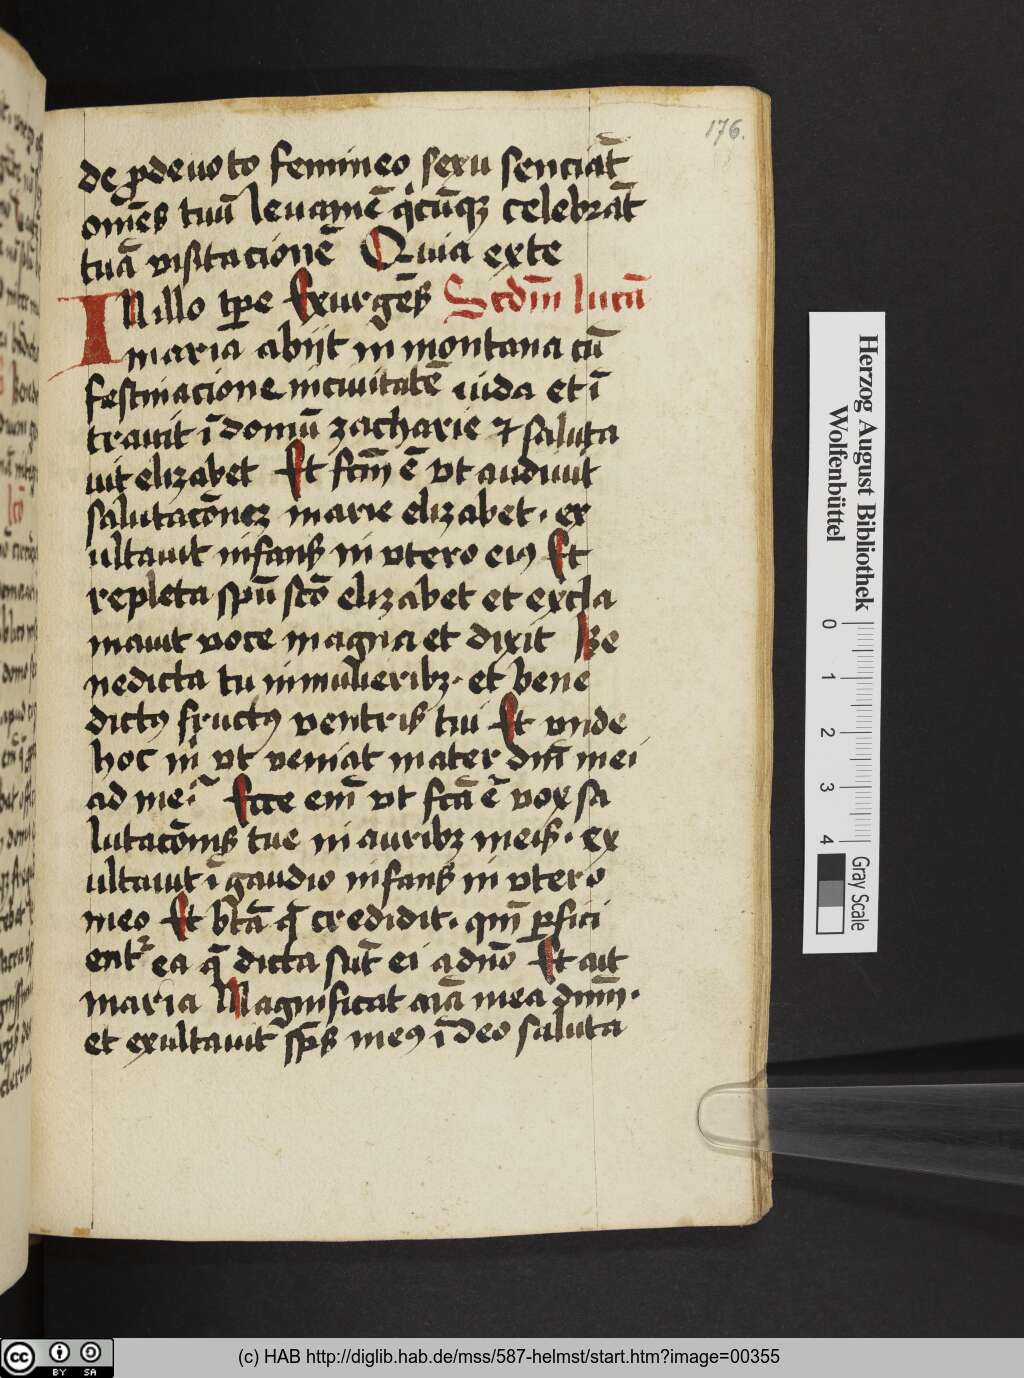 176.
de ꝓ deuoto femineo sexu senciāt
om̄es tuū leuamē q'cūqꝫ celebrāt
tuā visitacionē Quia ex te
In illo tꝑe Exurgēs Scdm̄ lucā
maria abijt in montana cū
festinacione in ciuitatē iuda et ī
trauit ī domū zacharie ⁊ saluta
uit elizabet Et fcm̄ ē vt audiuit
salutacōnez marie elizabet · ex
ultauit infans in vtero eiꝯ Et
repleta spū scō elizabet et excla
mauit voce magna et dixit Be
nedicta tu in mulieribꝫ · et bene
dictꝯ fructꝯ ventris tui Et vnde
hoc m' vt veniat mater dnī mei
ad me Ecce em̄ vt fcā ē vox sa
lutacōnis tue in auribꝫ meis · ex
ultauit ī gaudio infans in vtero
meo Et btā q̄ credidit · qm̄ ꝑfici
entr ea q̄ dicta sūt ei a dnō Et ait
maria Magnificat aīa mea dnm̄ ·
et exultauit sp̄s meꝯ ī deo saluta
Herzog August Bibliothek
Wolfenbüttel
0 1 2 3 4
Gray Scale
cc BY SA
(c) HAB http://diglib.hab.de/mss/587-helmst/start.htm?image=00355